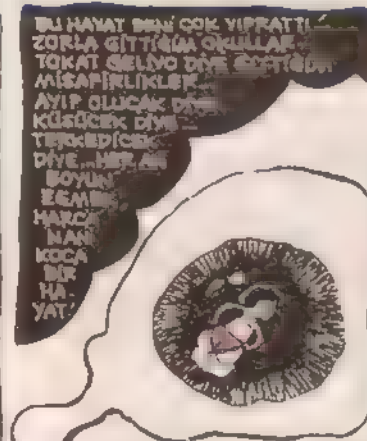 BU HAYAT BENİ ÇOK YIPRATTI
ZORLA GİTTİĞİM OKULLAR
TOKAT GELİYO DİYE
MİSAFİRLİKLER
AYIP OLUCAK DİYE
KÜSÜCEK DİYE
TERKEDİCEK
DİYE HER AN
BOYUN
EĞMEK
HARCA
NAN
KOCA
BİR
HA
YAT